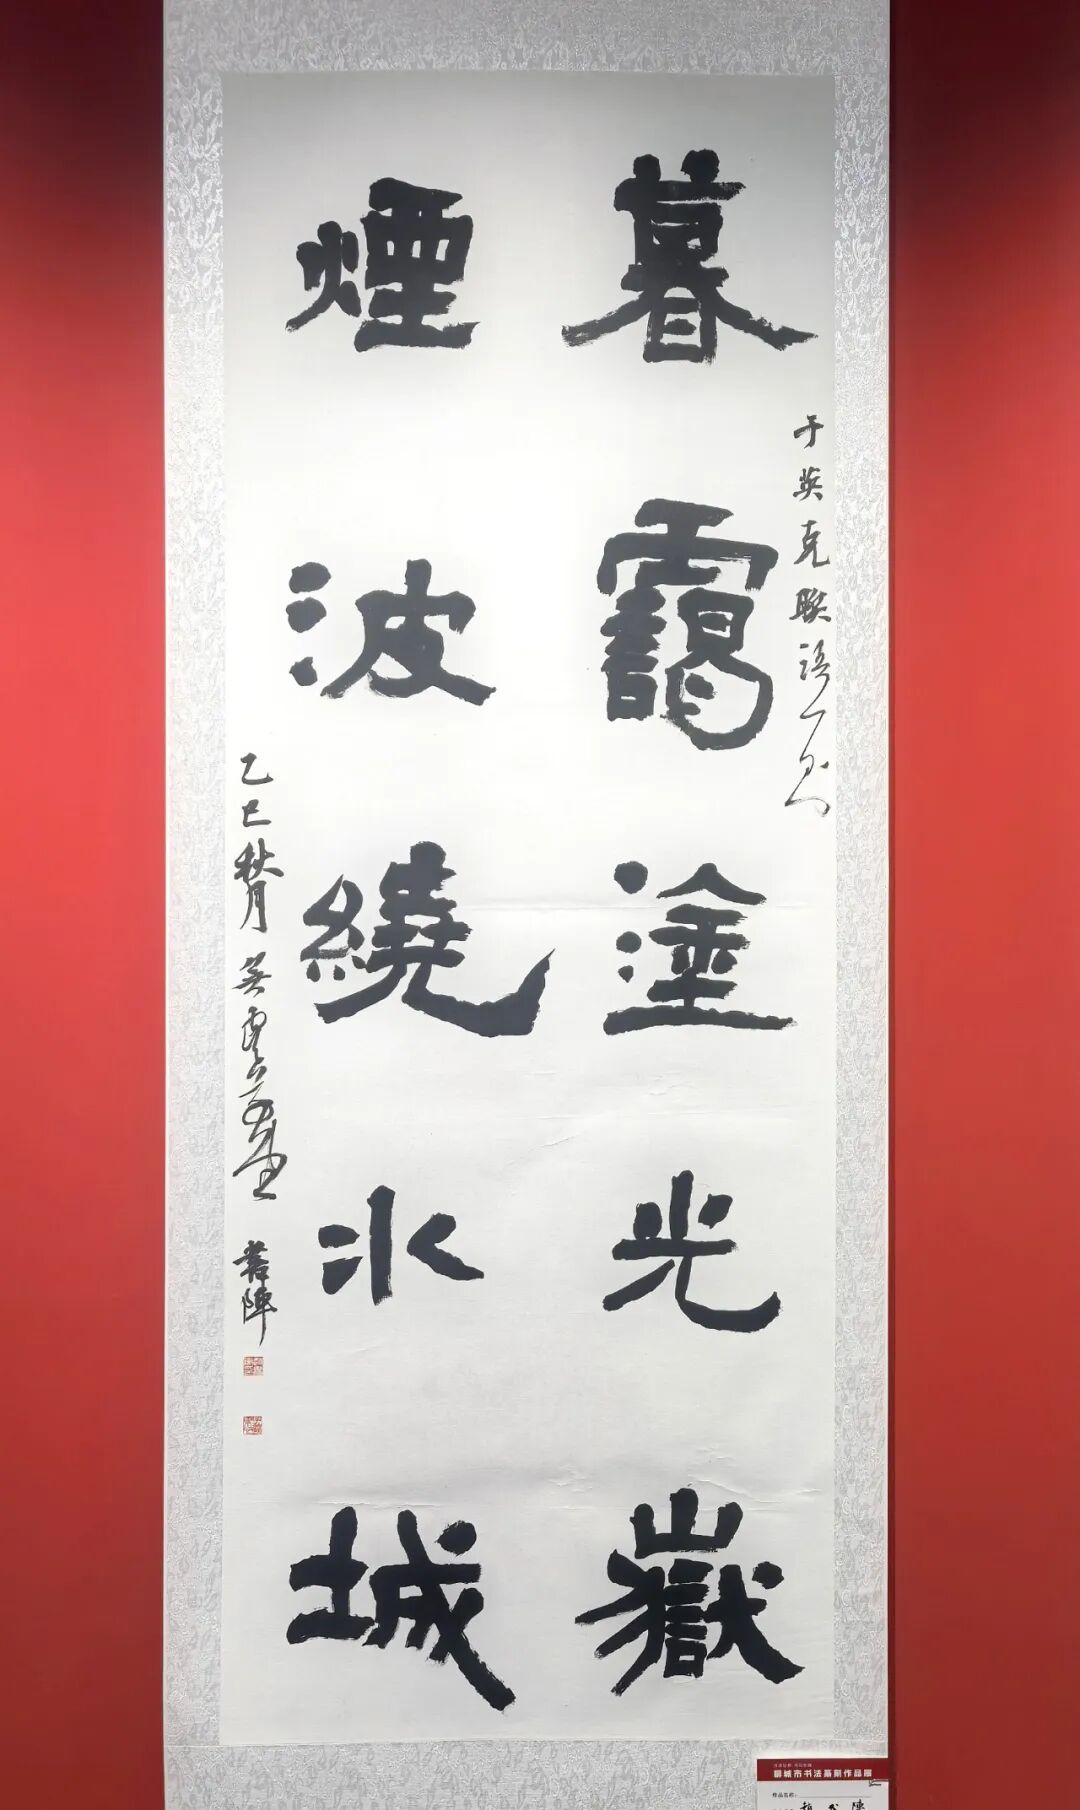 暮靄塗光嶽
于英克联语一则
煙波繞水城
乙巳秋月
書陣
聊城市书法篆刻作品展
作品名称: